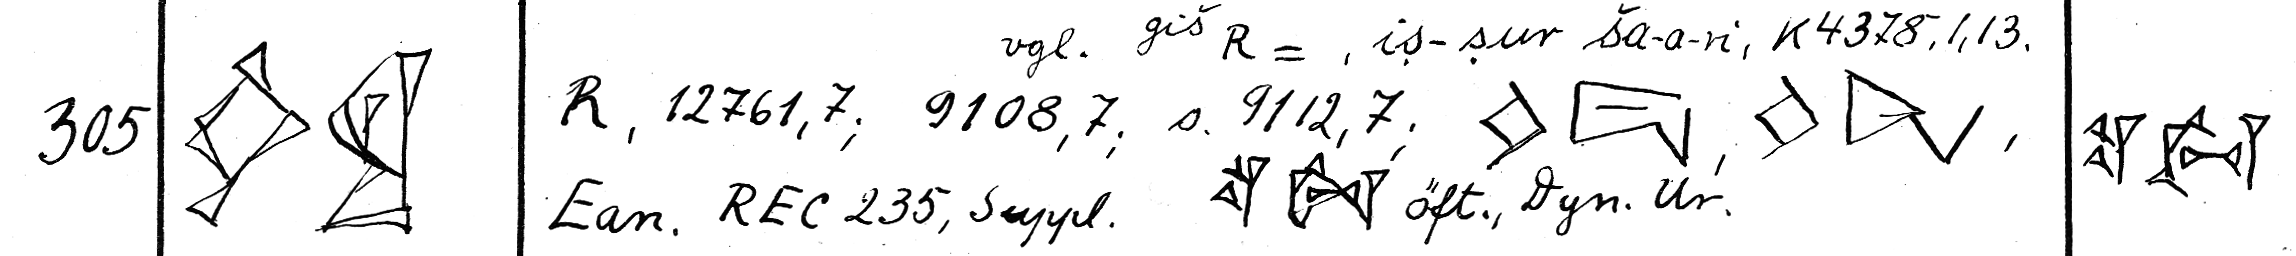 vgl. giš R = , iṣ-ṣur ša-a-ri, K 4378, I, 13.
305 R, 12761,7; 9108,7; s. 9112,7; , ,
Ean. REC 235, Suppl. öft., Dyn. Ur.